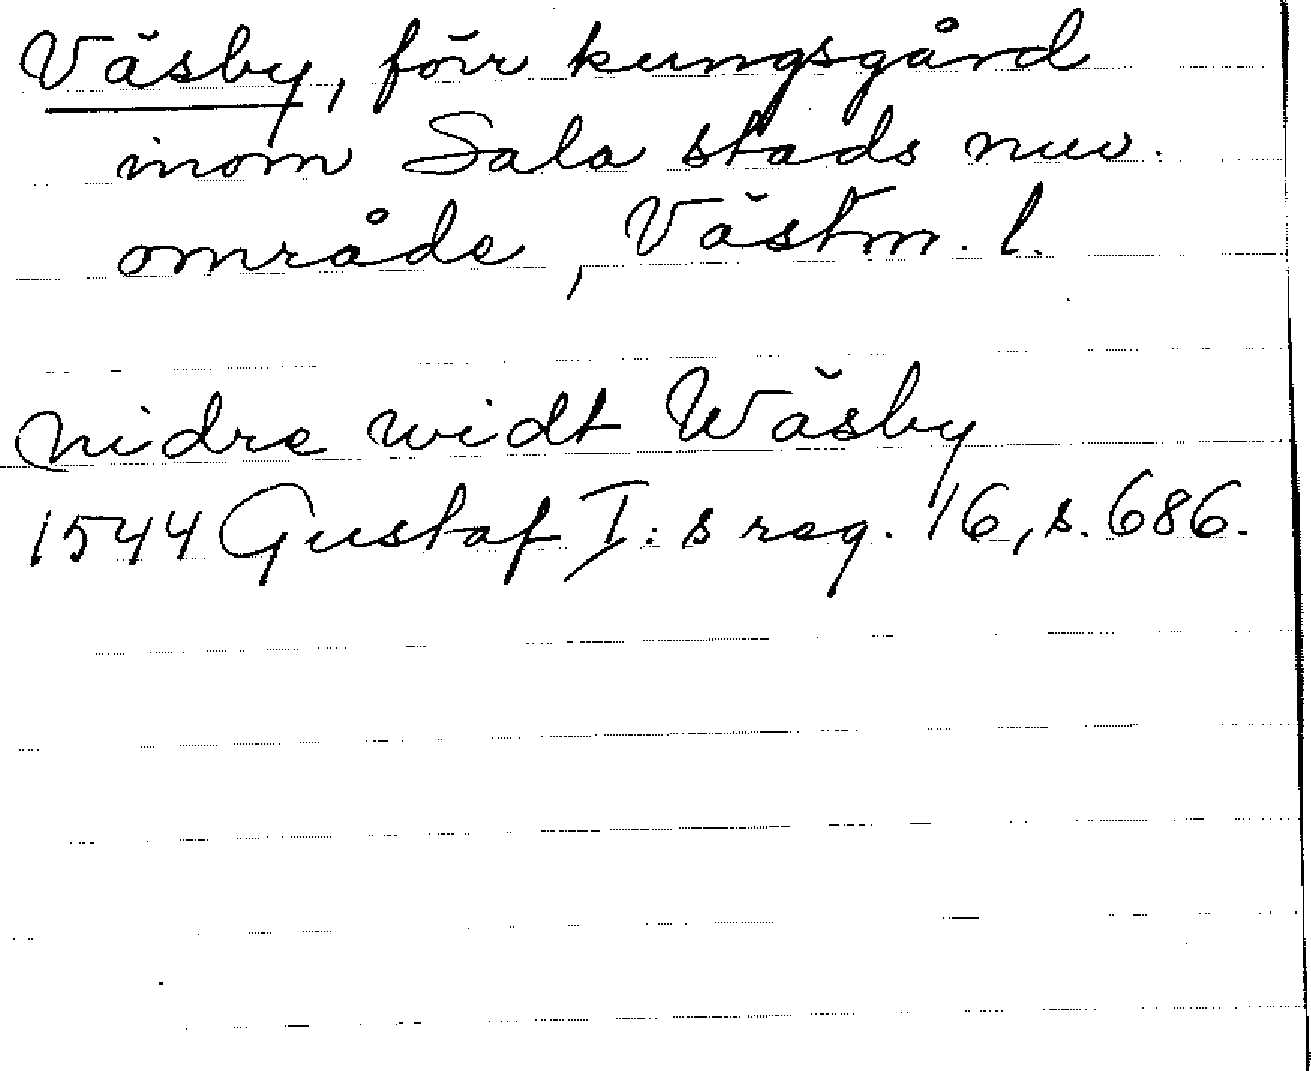 Väsby, förr kungsgård
inom Sala stads nuv.
område, Västm. l.
nidre widt Wäsby
1544 Gustaf I:s reg. 16, s. 686.